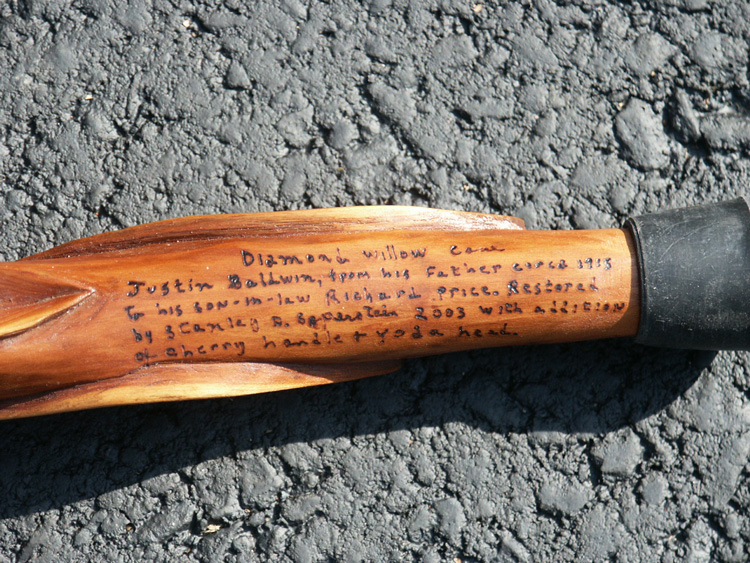 Diamond willow cane
Justin Baldwin, from his Father circa 1915
to his son-in-law Richard Price. Restored
by Stanley D. Saperstein 2003 with addition
of cherry handle + Yoda head.